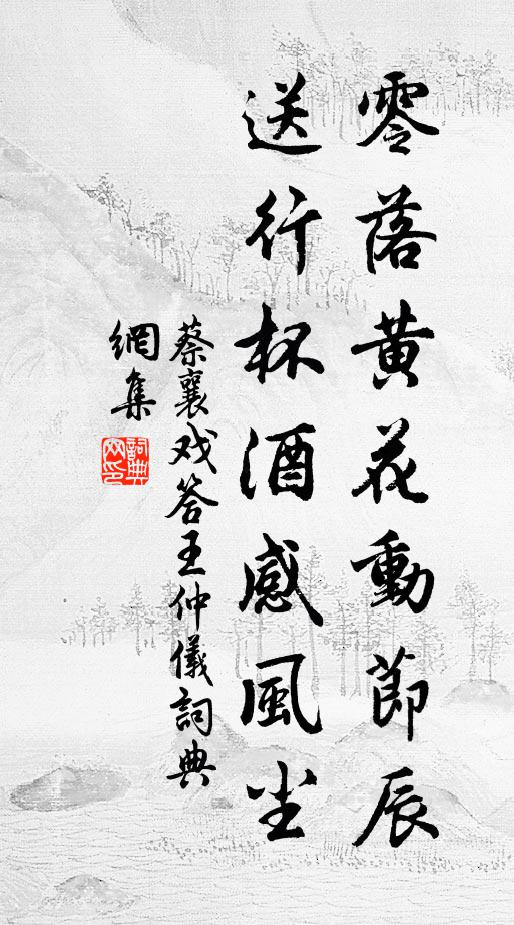 零落黄花動節辰
送行杯酒感風尘
蔡襄戏答王仲儀詞典
網集
詞典
网印